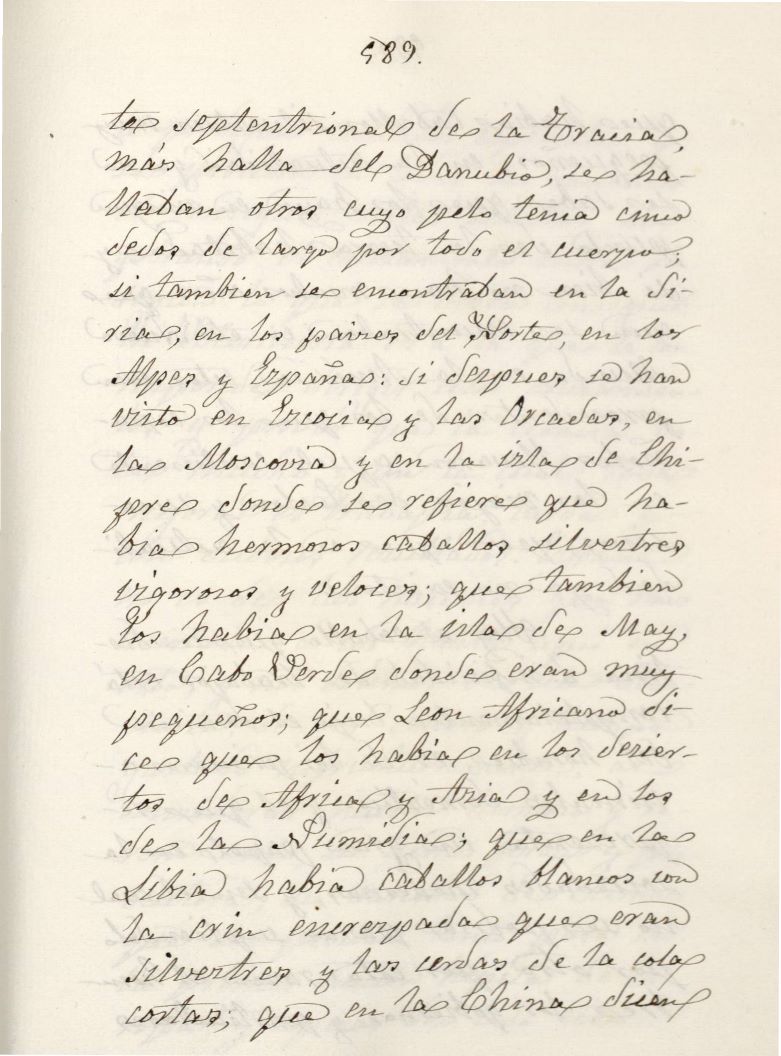 589.
te septentrional de la Tracia,
más halla del Danubio, se ha-
llaban otros cuyo pelo tenia cinco
dedos de largo por todo el cuerpo;
si tambien se encontraban en la Si-
ria, en los paises del Norte, en los
Alpes y España: si despues se han
visto en Escocia y las Orcadas, en
la Moscovia y en la isla de Chi-
pre donde se refiere que ha-
bia hermosos caballos silvestres
vigorosos y veloces; que tambien
los habia en la isla de May,
en Cabo Verde donde eran muy
pequeños; que Leon Africano di-
ce que los habia en los desier-
tos de Africa y Asia y en los
de la Numidia; que en la
Libia habia caballos blancos con
la crin encrespada que eran
silvestres y las cerdas de la cola
cortas; que en la China dicen